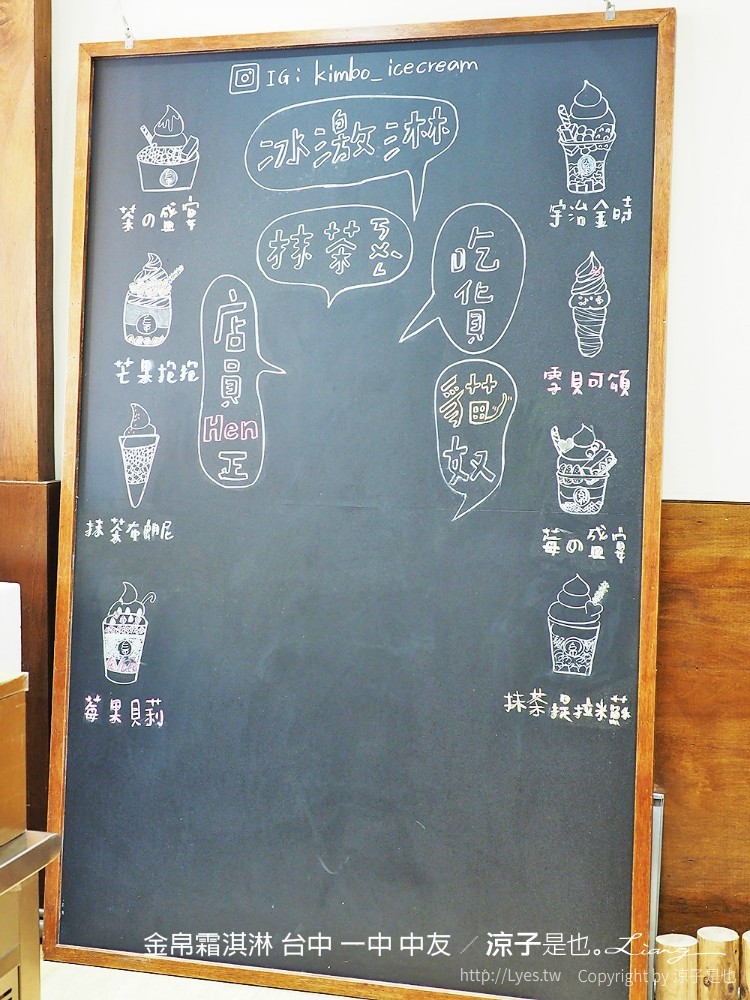 IG: kimbo_icecream
冰激淋
抹茶ㄎㄨㄥ
吃貨
店員Hen正
貓奴
茶の盛宴
芒果抱抱
抹茶布朗尼
莓果貝莉
宇治金時
雫貝可頌
莓の盛宴
抹茶提拉米蘇
金帛霜淇淋 台中 一中 中友 ／ 涼子是也。Liang
http://Lyes.tw Copyright by 涼子是也